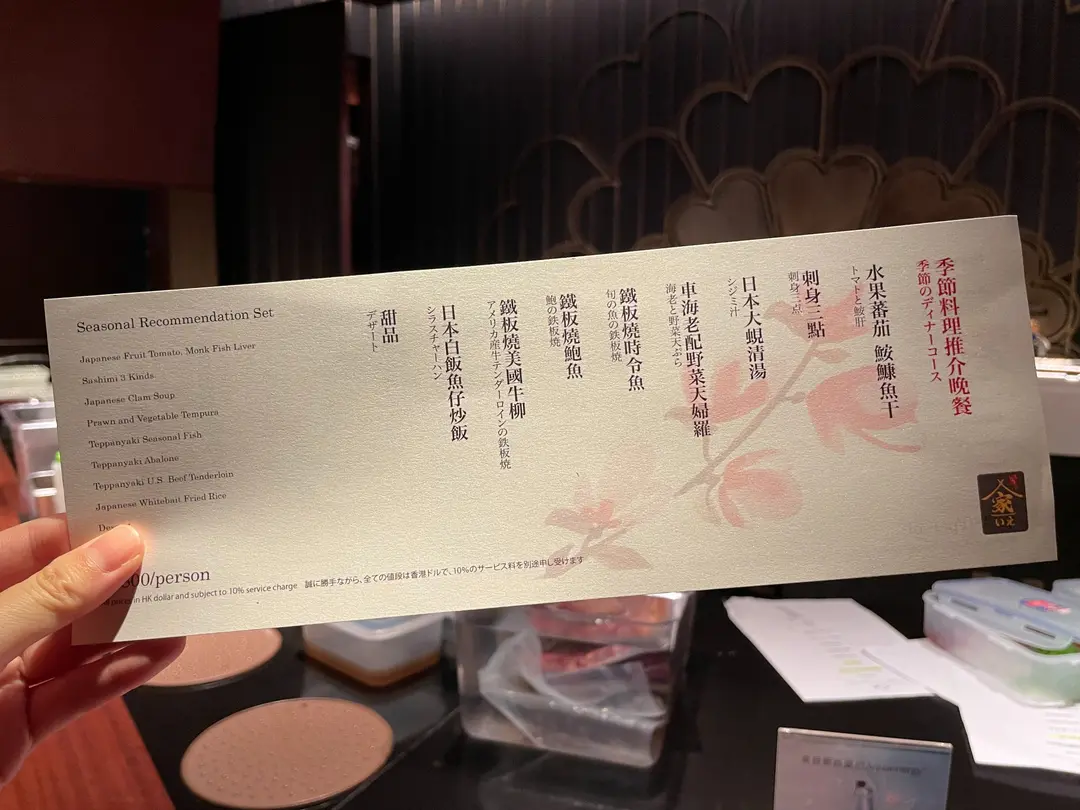 季節料理推介晚餐
季節のディナーコース
水果蕃茄 鮟鱇魚干
トマトと鮟肝
刺身三點
刺身三点
日本大蜆清湯
シジミ汁
車海老配野菜天婦羅
海老と野菜天ぷら
鐵板燒時令魚
旬の魚の鉄板焼
鐵板燒鮑魚
鮑の鉄板焼
鐵板燒美國牛柳
アメリカ産牛テンダーロインの鉄板焼
日本白飯魚仔炒飯
シラスチャーハン
甜品
デザート
Seasonal Recommendation Set
Japanese Fruit Tomato, Monk Fish Liver
Sashimi 3 Kinds
Japanese Clam Soup
Prawn and Vegetable Tempura
Teppanyaki Seasonal Fish
Teppanyaki Abalone
Teppanyaki U.S. Beef Tenderloin
Japanese Whitebait Fried Rice
/person
in HK dollar and subject to 10% service charge. 誠に勝手ながら、全ての値段は香港ドルで、10%のサービス料を別途申し受けます
家
いえ